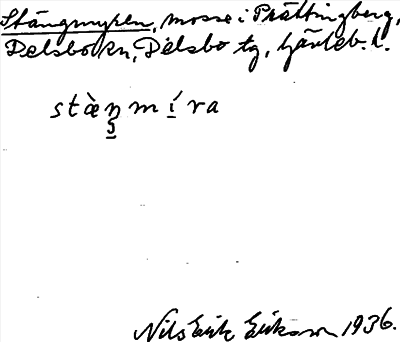 Stångmyren, mosse i Prästingberg,
Delsbo kn, Delsbo tg, Gävleb. l.
stæ̀ŋmíra
Nils Erik Erikson 1936.